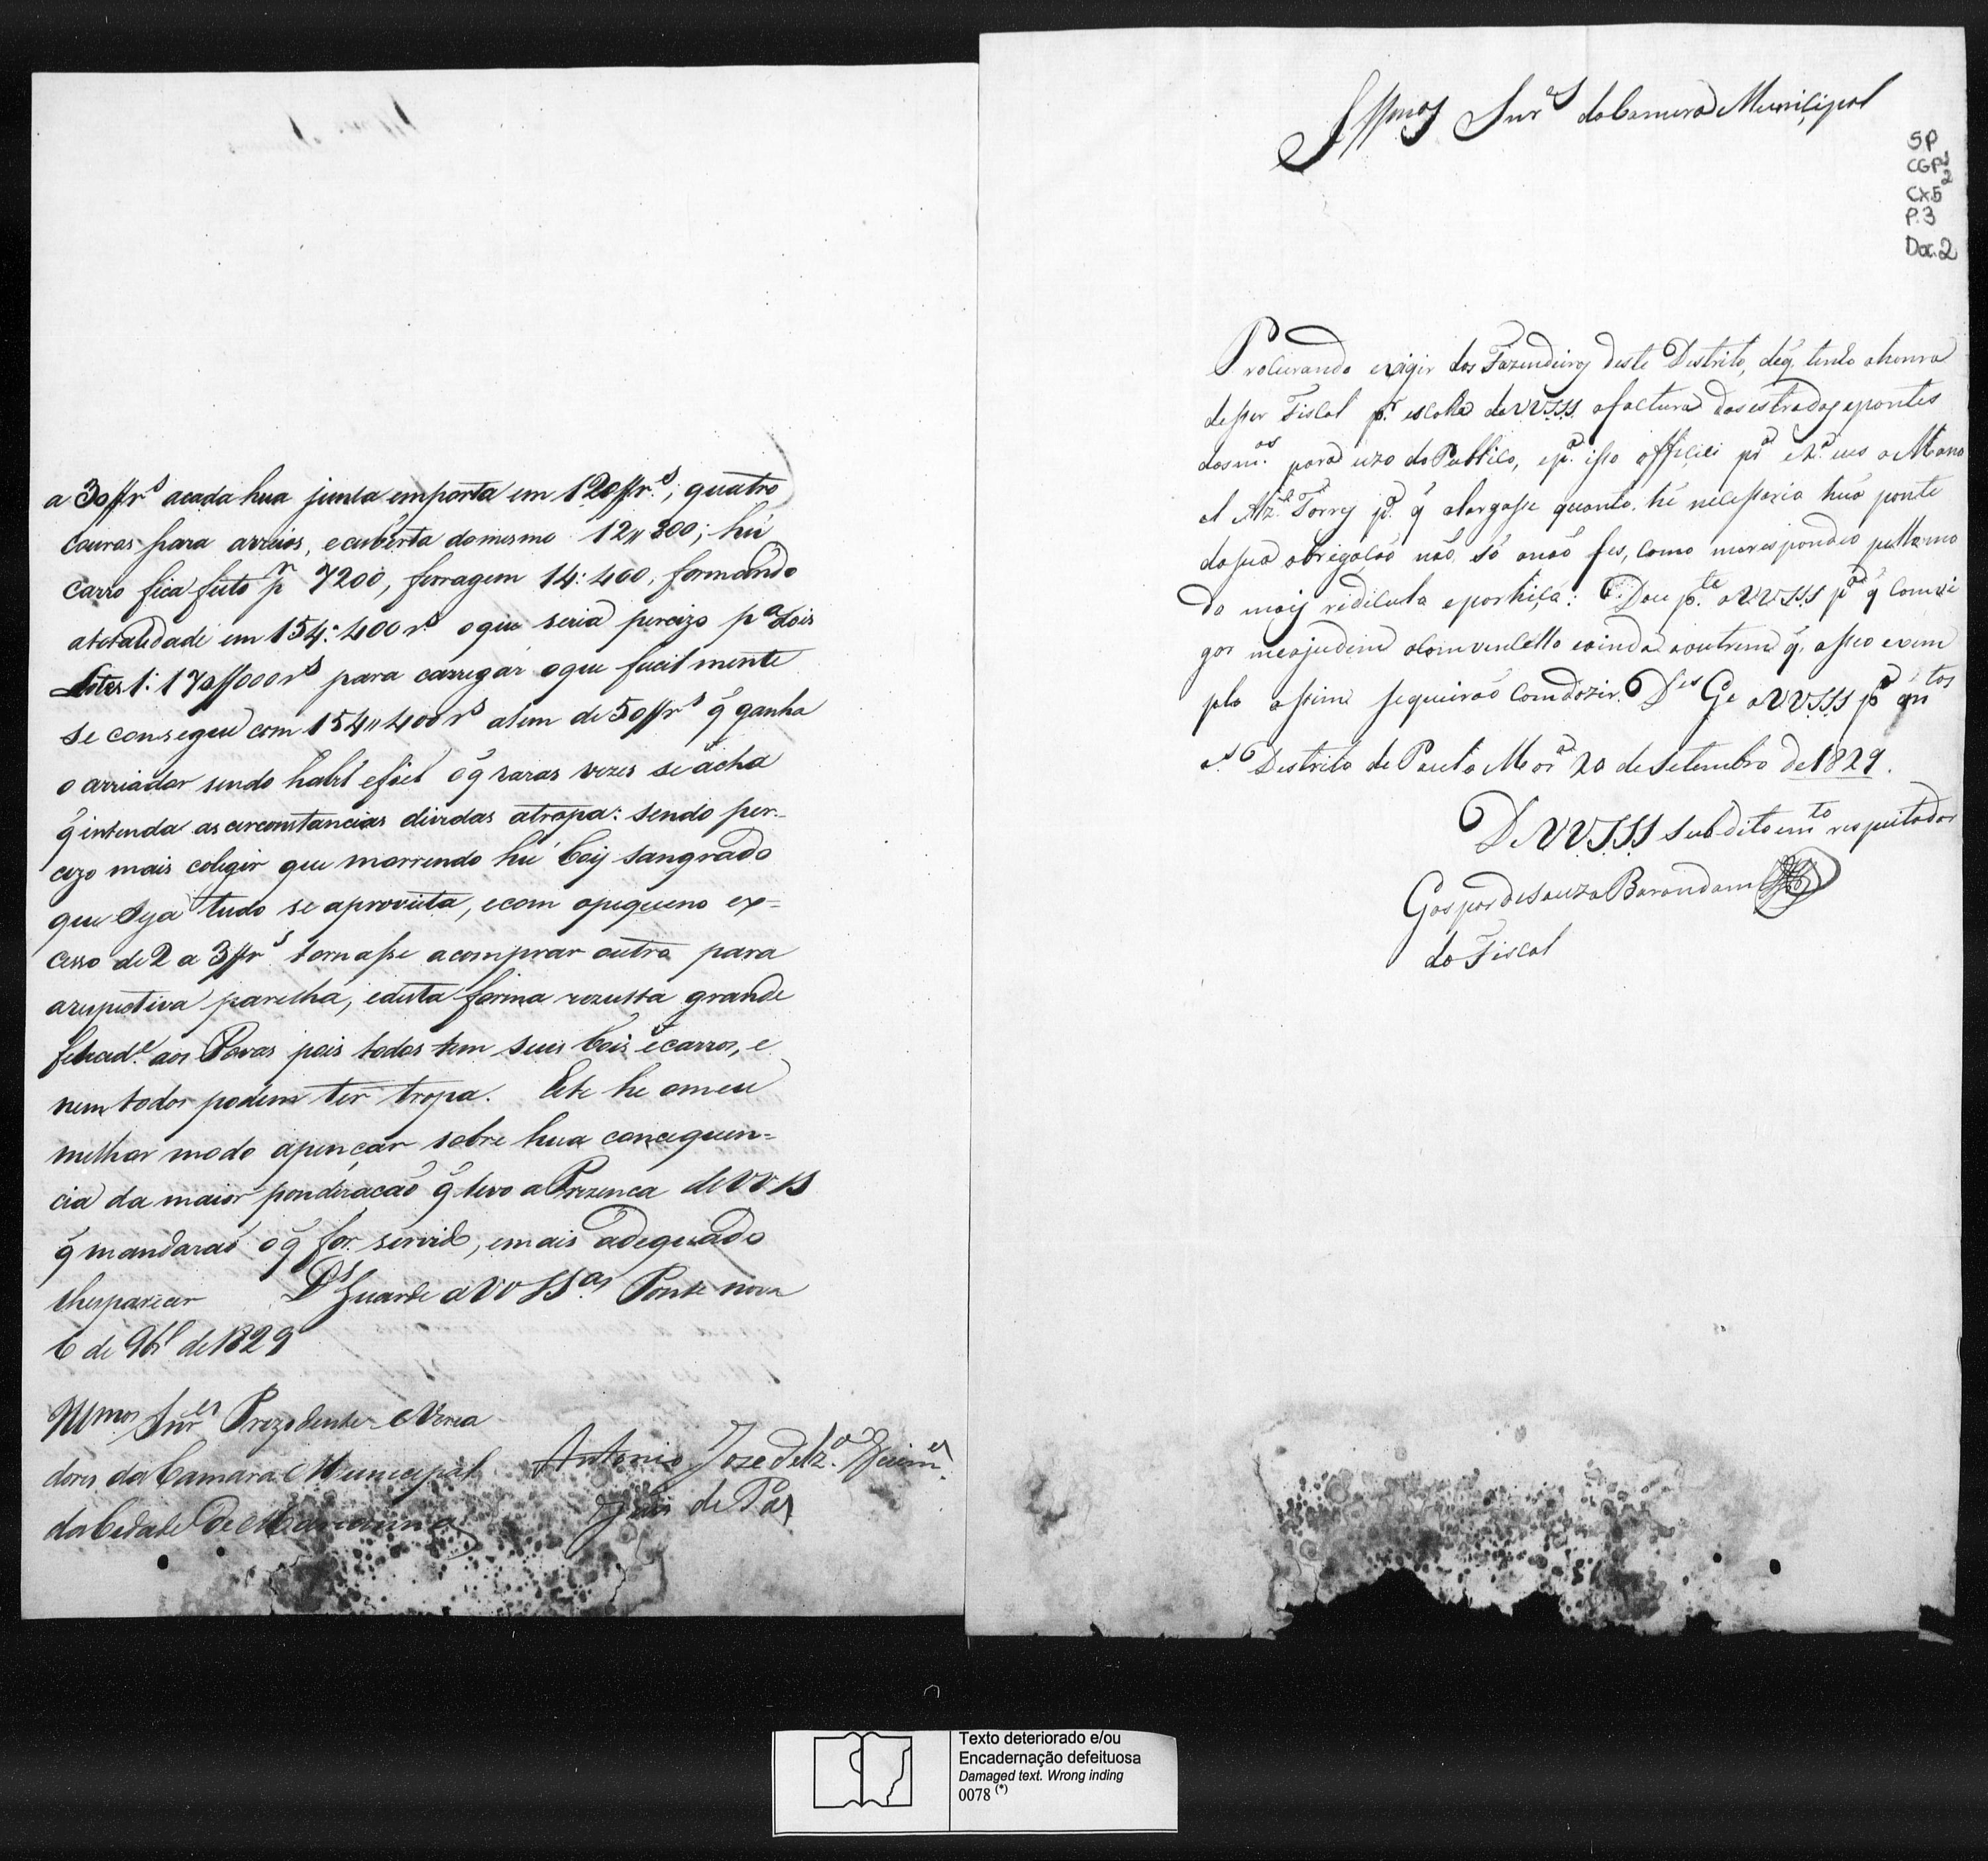 a 30//rˢ acada hua junta emporta em 120//rˢ; quatro
couros para arreios, ecuberta domesmo 12"800; hú
carro fica feito pʳ 7200, ferragem 14:400, formando
atotalidade em 154:400 rˢ oque seria percizo pª dois
Lotes 1:170//000 rˢ para carregar oque facilmente
se consegue com 154"400 rˢ alem de 50//rˢ q̃ ganha
o arriador sendo habil efiel oq̃ raras vezes se acha
q̃ intenda as circonstancias dividas atropa: sendo per-
cizo mais coligir que morrendo hú boij sangrado
que seja tudo se aproveita, ecom opequeno ex=
cesso de 2 a 3//rˢ tornasse acomprar outro para
arespectiva parelha, edesta forma rezulta grande
felicidᵉ aos Povos pois todos tem seus bois ecarros, e
nem todos podem ter tropa. Este he omeu
melhor modo apençar sobre hua concequen=
cia da maior ponderacaõ q̃ levo aPrezenca deVVSS
q̃ mandaraõ oq̃ for servido, emais adequado
lhesparecer Dˢ Guarde aVVSSªˢ Ponte nova
6 de 9bʳᵒ de 1829
Illmos Snrᵉˢ Prezidente eVerea
dores daCamara Municipal
daCidade De Marianna
Antonio Joze deAz.ᵈᵒ Guimᵉˢ
Juis de Pas
Illmos Snrᵉˢ daCamera Municipal
SP
CGP
2
CX5
P.3
Doc.2
Procurando exigir dos Fazendeiros deste Destrito, deq̃ tenho ahonra
deser Fiscal pʳ escolha deVVSSS. afactura dasestradas epontes
dasmᵃˢ para uzo do Publico, epʳ isso officiei
el Torres pª q̃ alargasse quanto hé necessario húa ponte
dasua obrigacaõ não só onaõ fes, como
do mais ridicula Dou pᵗᵉ aVVSSS pª q̃
assim sequeiraõ comdozir. Dˢ Gᵉ aVVSSS pʳ mᵗᵒˢ
aˢ Destrito de Paulo Morᵃ 20 deSetembro de1829.
DeVVSSS Subdito emᵗᵒ respeitador
Gaspar deSouza Barandam
do Fiscal
Texto deteriorado e/ou
Encadernação defeituosa
Damaged text. Wrong inding
0078 (*)